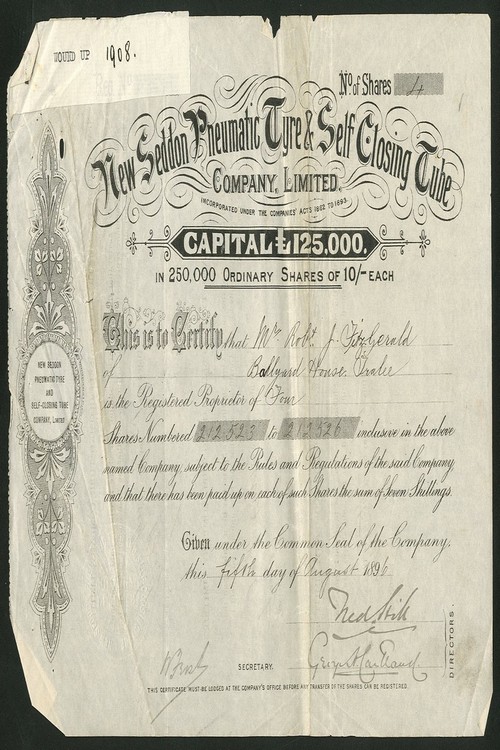 WOUND UP 1908.
No. of Shares 4
New Seddon Pneumatic Tyre & Self Closing Tube
COMPANY, LIMITED.
INCORPORATED UNDER THE COMPANIES' ACTS 1862 TO 1893.
CAPITAL £125,000.
IN 250,000 ORDINARY SHARES OF 10/- EACH
This is to Certify that Mr Robt. J. FitzGerald
of Ballyard House. Tralee
is the Registered Proprietor of Four
Shares Numbered 212,523 to 212,526 inclusive in the above
named Company, subject to the Rules and Regulations of the said Company
and that there has been paid up on each of such Shares the sum of Seven Shillings.
Given under the Common Seal of the Company,
this fifth day of August 1896.
SECRETARY.
DIRECTORS.
THIS CERTIFICATE MUST BE LODGED AT THE COMPANY'S OFFICE BEFORE ANY TRANSFER OF THE SHARES CAN BE REGISTERED.
NEW SEDDON
PNEUMATIC TYRE
AND
SELF-CLOSING TUBE
COMPANY, LIMITED